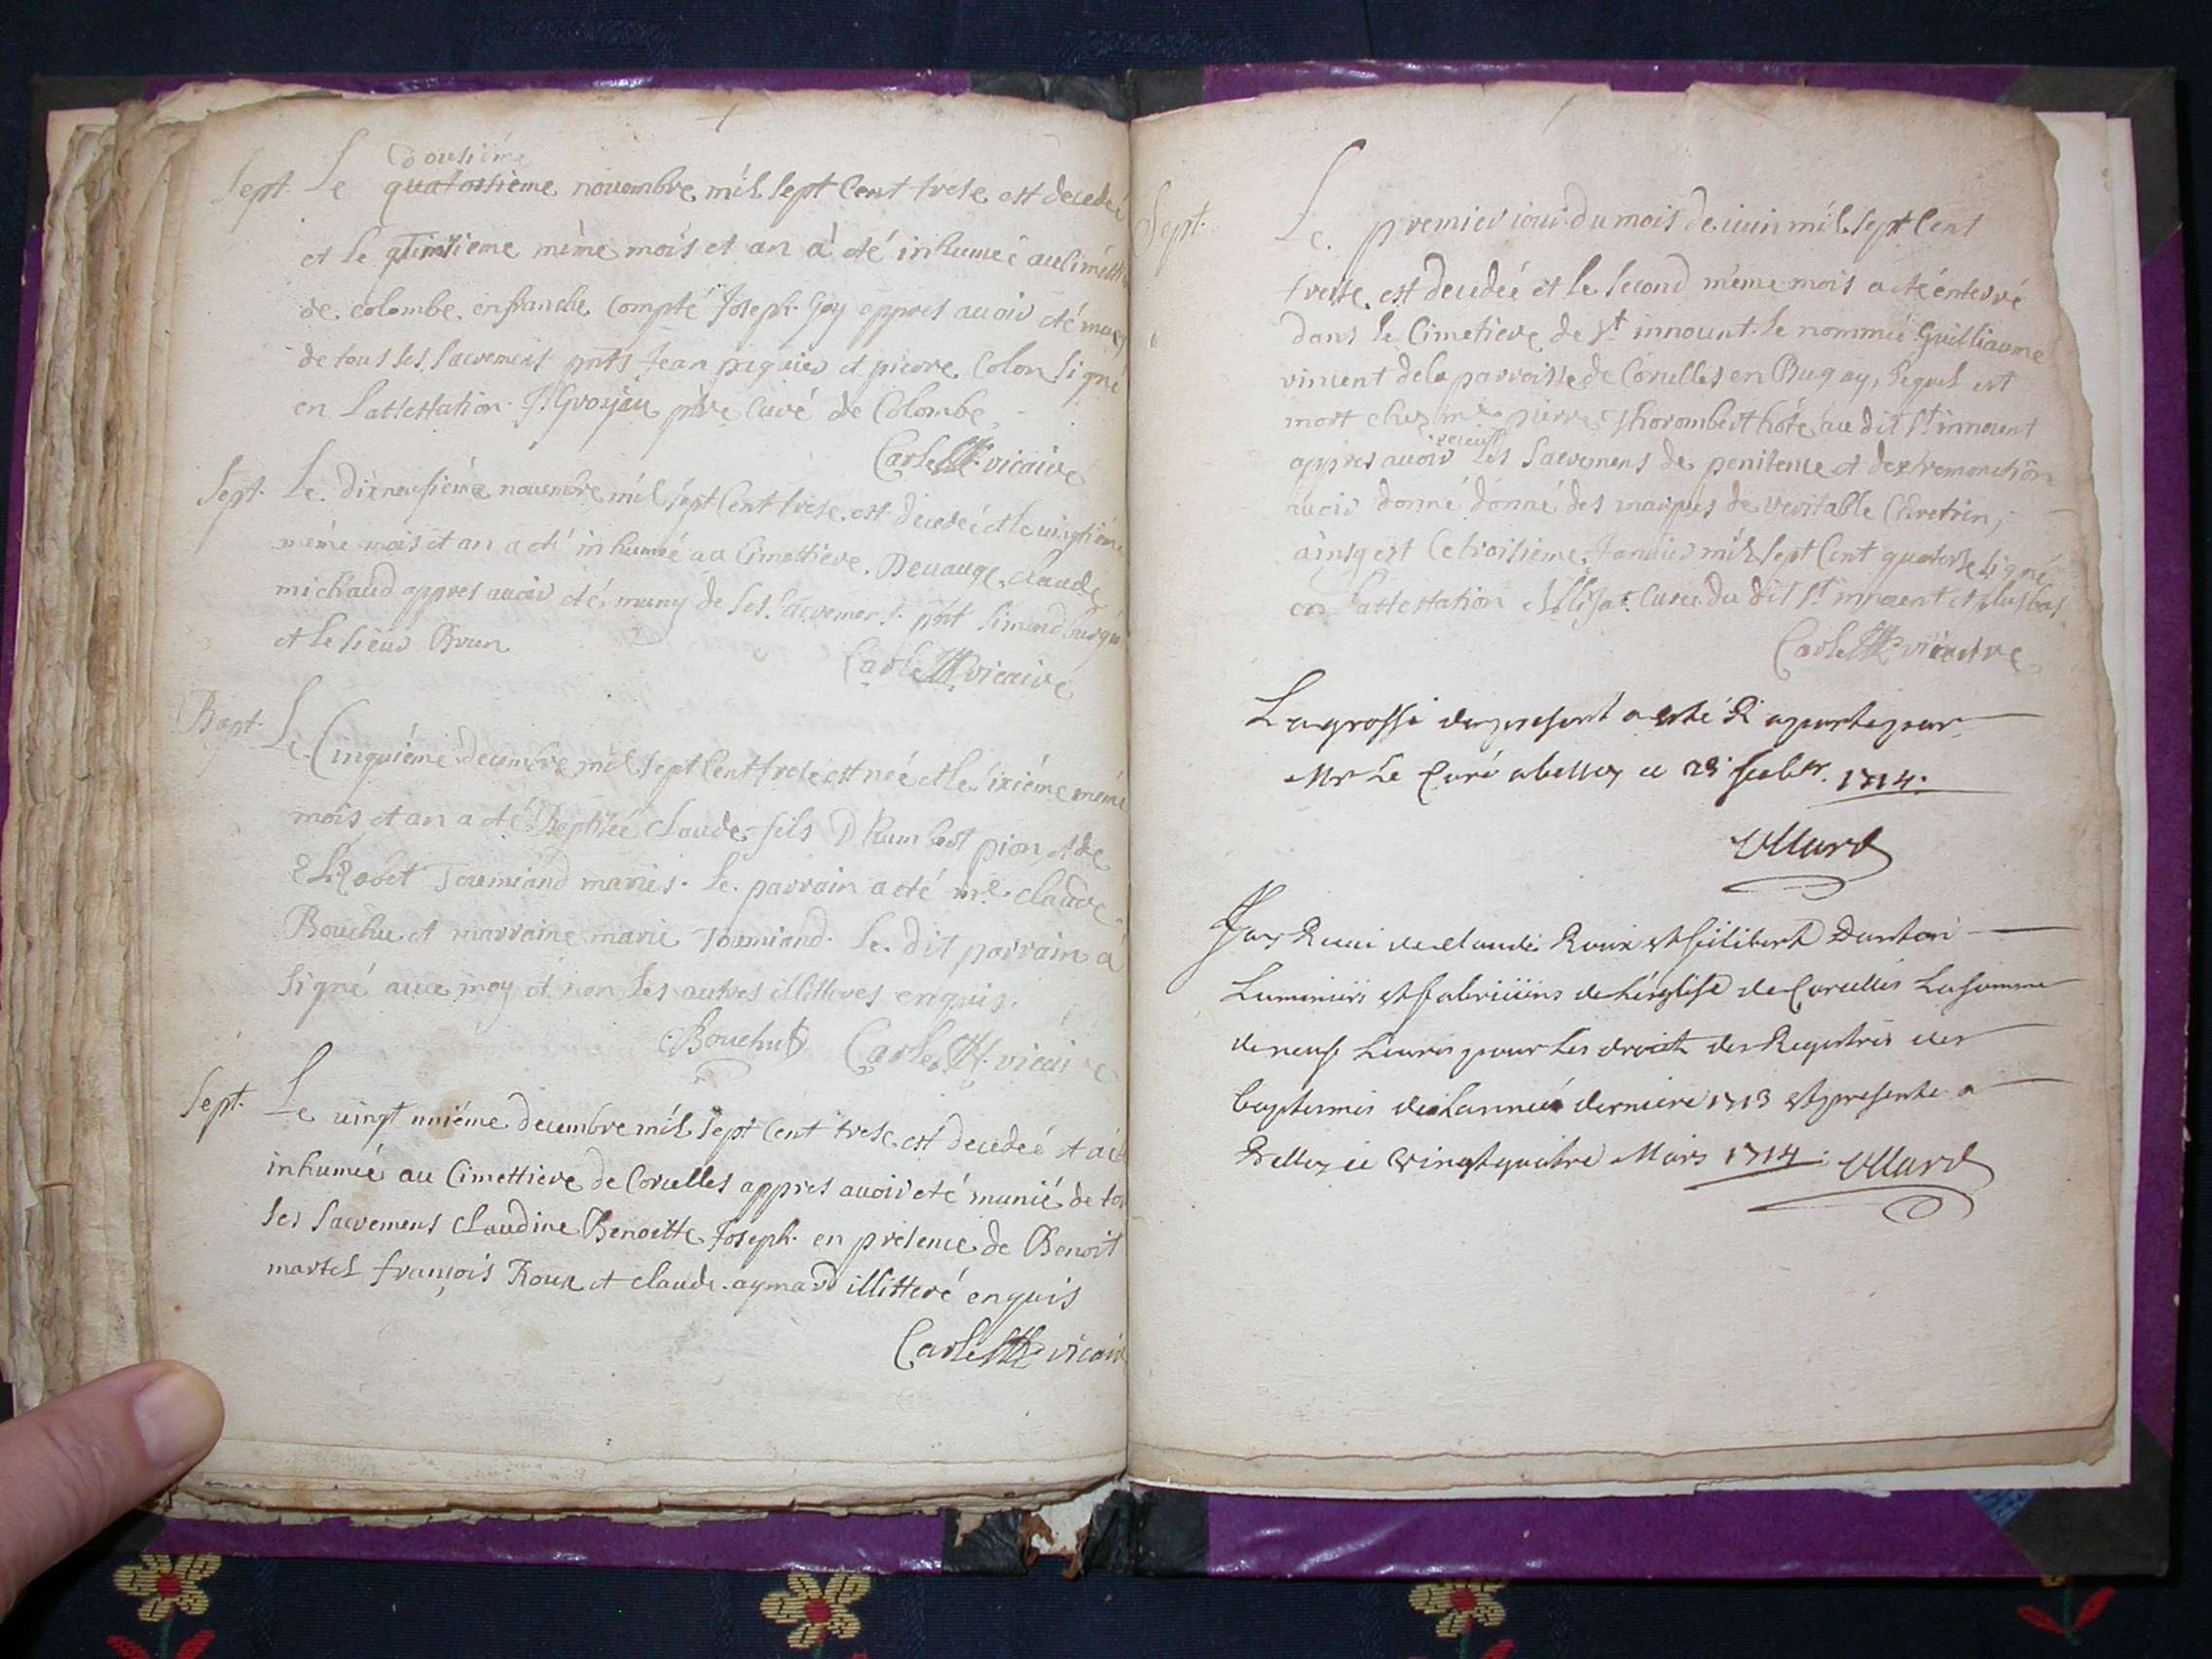 dousiéme
Sept. Le quatorsième novembre mil sept cent trese est decedeé
et le quinsieme même mois et an a été inhumeé au cimetti
de colombe en franche compté Joseph Goy appres avoir été muny
de tous les sacremens pnts Jean paquier et pierre Colon signé
en l'attestation J. Grosjan ptre curé de Colombe
Carle vicaire
Sept. Le dixneufiéme novembre mil sept cent trese est decedeé et le vingtiéme
même mois et an a été inhumeé au Cimettiere Devauge claude
michaud appres avoir été muny de ses sacremens pnt Simond
et le sieur Brun
Carle vicaire
Bapt. Le Cinquiéme decembre mil sept cent trese est neé et le sixiéme même
mois et an a été Baptiseé claude fils D'humbert pion et de
Elizabet Toumiand mariés. Le parrain a été me. claude
Bouchu et marraine marie Toumiand. Le dit parrain a
signé avec moy et non les autres illitteres enquis.
Bouchu Carle vicaire
Sept. Le vingt uniéme decembre mil sept cent trese est decedeé et a été
inhumeé au Cimettiere de Corcelles appres avoir eté munié de to
ses sacremens claudine Benoitte Joseph en presence de Benoit
martel françois Roux et claude aymard illitteré enquis
Carle vicaire
Sept. Le premier jour du mois de juin mil sept cent
treise est decedeé et le second même mois a eté énterré
dans le Cimetiere de St innocent le nommé Guilliaume
vincent de la parroisse de Corcelles en Bugey, lequel est
mort chez me pierre Thorombert hôte au dit St innocent
appres avoir receus les sacremens de penitence et dextremonction
avoir donné donné des marques de veritable Chretien,
ainsy est ce troisieme Janvier mil sept cent quatorse signé
en l'attestation curé du dit St innocent et plus bas
Carle vicaire
La grosse du present a esté Raporté par
Mr Le Curé a belley ce 1714.
Ullard
Jay Receu de Claude Roux et filibert Dantoin
Luminiers et fabriciens de Léglise de Corcelles La somme
de neuf Livres pour Les droits des Registres des
baptemes de Lannée derniere 1713 et presente a
Belley ce vingt quatre Mars 1714. Ullard